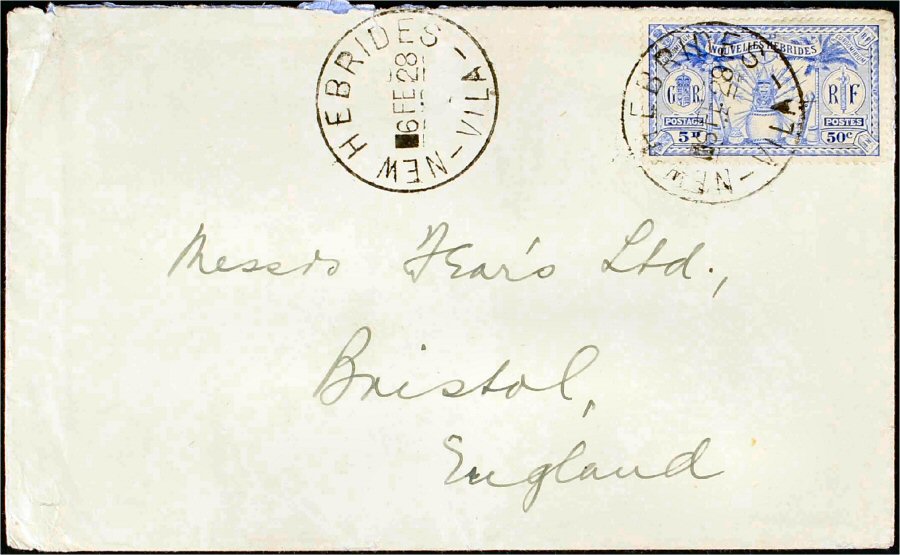 NEW HEBRIDES - VILA -
6 FE 28
NEW HEBRIDES - VILA -
FE 28
NOUVELLES HEBRIDES
G R R F
POSTAGE POSTES
5D 50c
Messrs Fear's Ltd.,
Bristol,
England